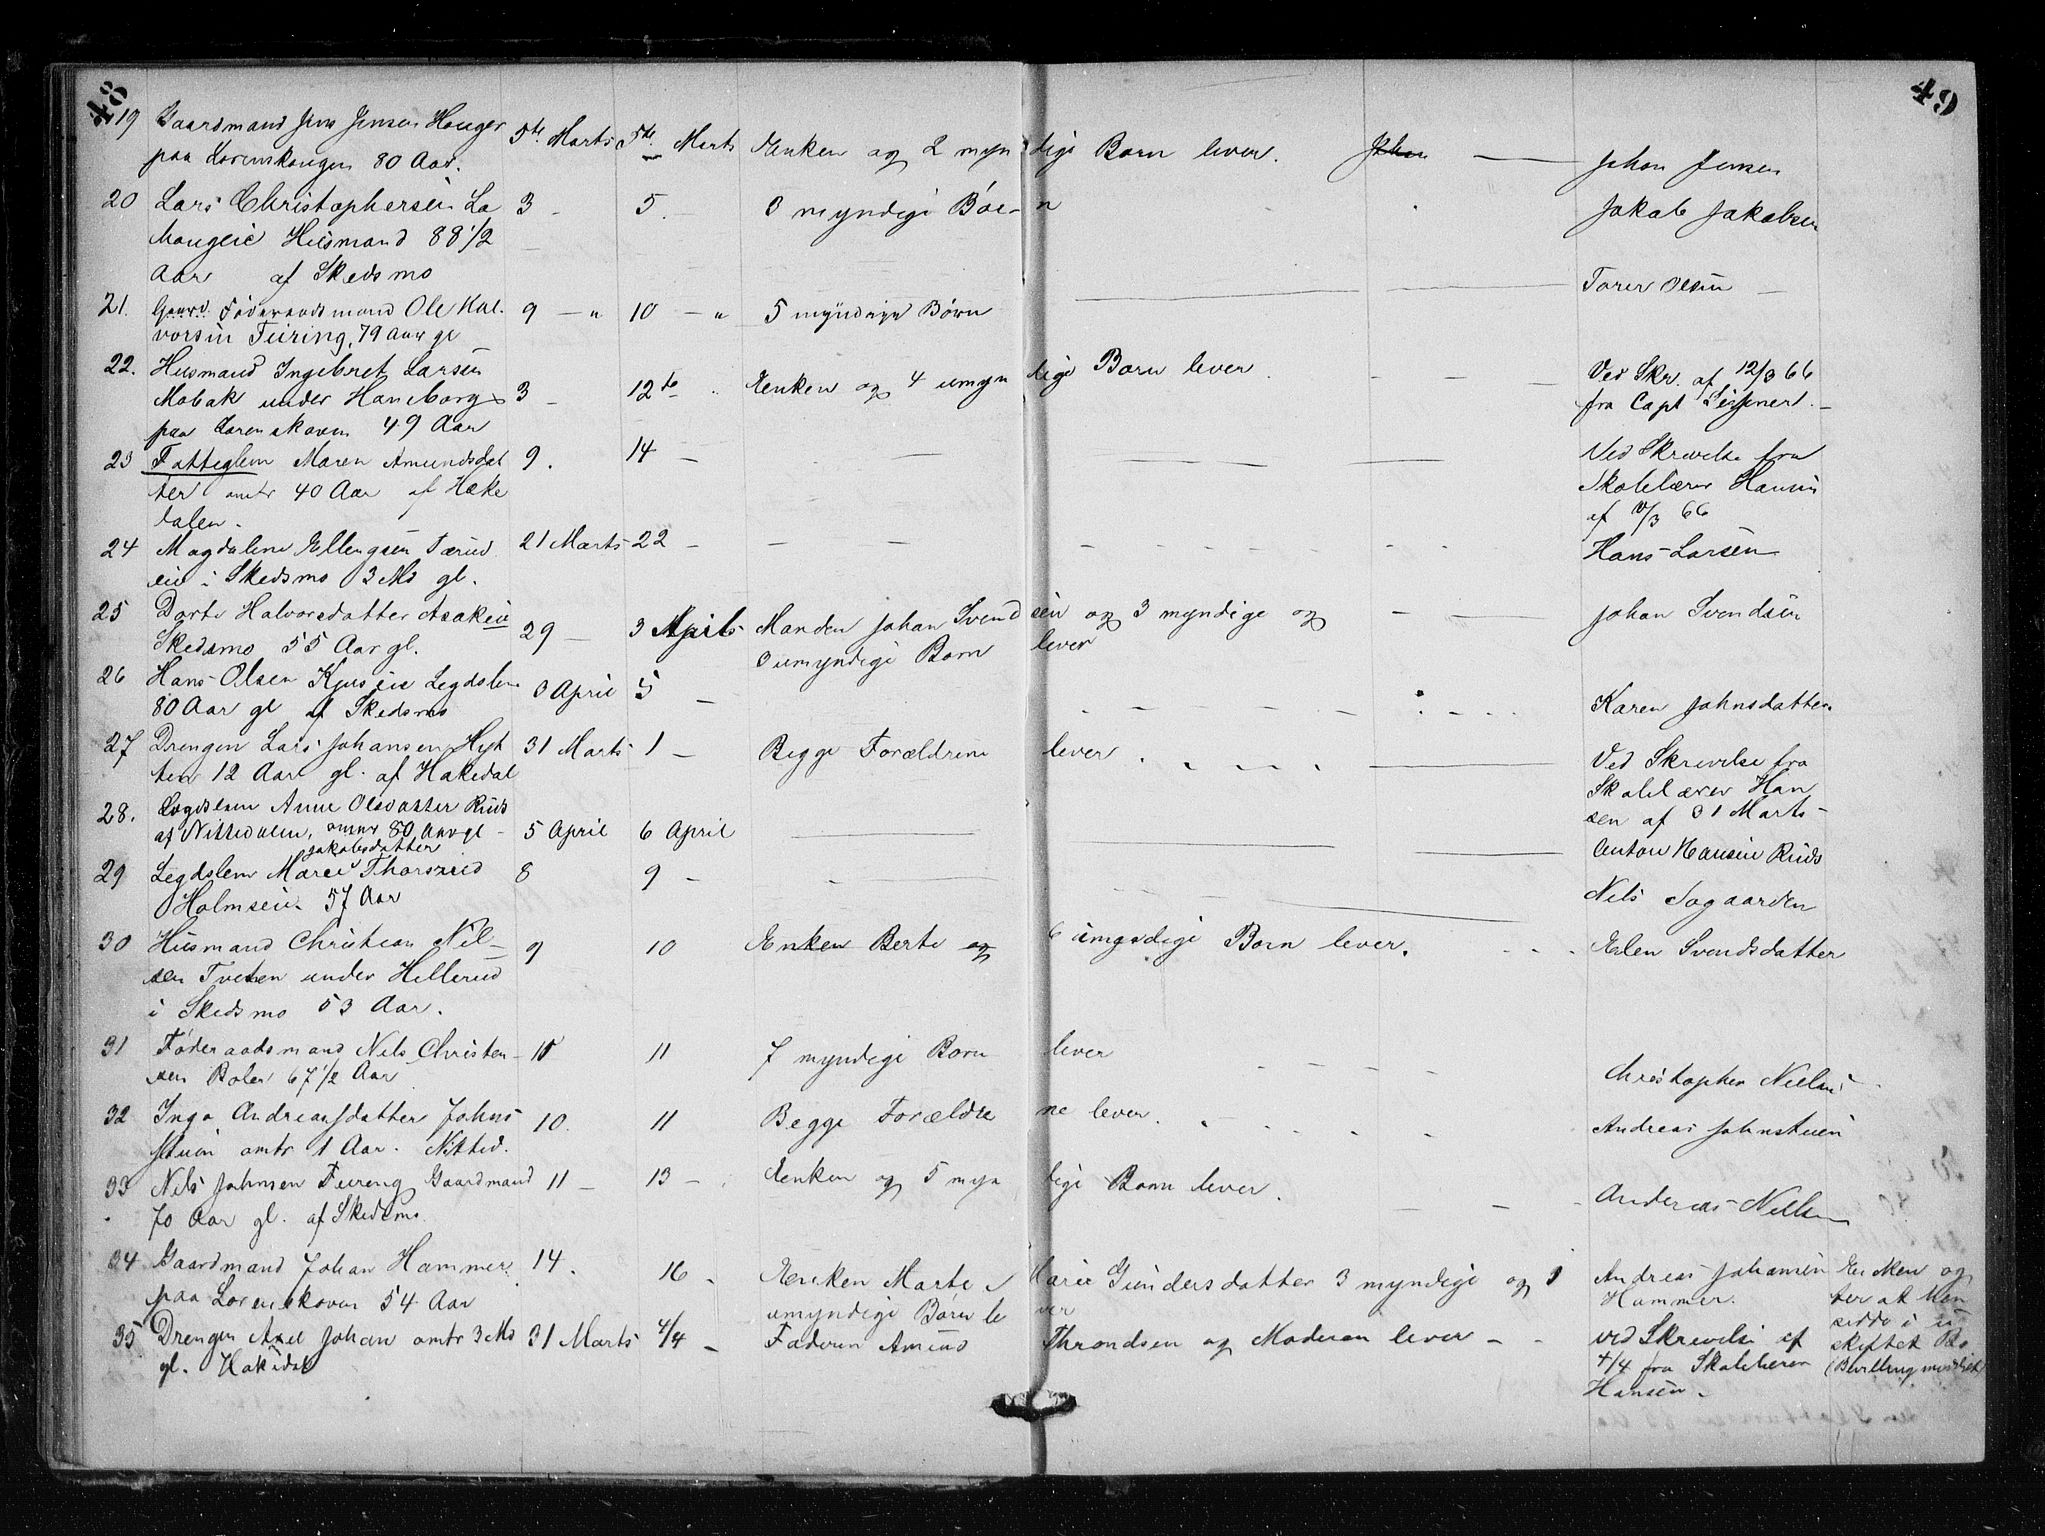 48
49
19 Gaardmand Jens Jensen Hauger 5te Marts 5te Marts Enken og 2 myndige Born lever. John — Johan Jensen
paa Lorenskougen 80 Aar.
20 Lars Christophersen La 3 - 5. - 3 myndige Børn Jakob Jakobsen
Mougeie Husmand 88 1/2
Aar af Skedsmo
21. Gaard. Føderaadsmand Ole Hal- 9 — " 10 — " 5 myndige Børn — Torer Olsen —
vorsen Feiring, 79 Aar gl
22. Husmand Ingebret Larsen 3 - 12te Enken og 4 umyndige Born lever Ved Skr. af 12/3 66
Mobak under Haneborg fra Capt
paa Lorenskoven 49 Aar
23 Fattiglem Maren Amundsdat 9. 14 — Ved Skrivelse fra
ter omtr 40 Aar af Hake Skolelærer Hansen
dalen. af /3 66
24 Magdalene Ellengsen Færud 21 Marts 22 — Hans Larsen
eie i Skedsmo 3 Md gl.
25 Dorte Halvorsdatter Asakeie 29 — 3 April Manden Johan Svendsen og 3 myndige og Johan Svendsen
Skedsmo 55 Aar gl. 3 umyndige Born lever
26 Hans Olsen Kjuseie Legdslem 3 April 5 — Karen Johnsdatter
80 Aar gl af Skedsmo
27 Drengen Lars Johansen Hyt 31 Marts 1 — Begge Forældrene lever. Ved Skrivelse fra
ten 12 Aar gl. af Hakedal Skolelærer Han
sen af 31 Marts
28. Legdslem Anne Olsdatter Ruds
af Nittedalen, omtr 80 Aar gl - 5 April 6 April — Anton Hansen Ruds
29 Legdslem Marei Jakobsdatter Thorsrud 8 9 — Nils Sogaarden
Holmseie. 57 Aar
30 Husmand Christian Niel- 9 10 Enken Berte og 6 umyndige Born lever. Elen Svendsdatter
sen Tveten under Hellerud
i Skedsmo 53 Aar.
31 Føderaadsmand Nils Christen- 10 11 7 myndige Born lever Christopher Nielsen
sen Boler 67 1/2 Aar
32 Inga Andreasdatter Johns 10. 11 Begge Forældrene lever. Andreas Johnstuen
stuen omtr 1 Aar. Nitted.
33 Nils Johnsen Feiring Gaardmand 11 — 13 — Enken og 5 myndige Born lever. Andreas Nilsen
70 Aar gl. af Skedsmo
34 Gaardmand Johan Hammer 14. 16 - Enken Marte Marie Gundersdatter 3 myndige og 1 Andreas Johansen Enken og
paa Lorenskoven 54 Aar umyndige Børn lever Hammer. ter at hen
sidde i u
35 Drengen Axel Johan omtr 3 Md 31 Marts 4/4 — Faderen Amund Throndsen og Moderen lever — - ved Skrivelse af skiftet Bo
gl. Hakedal 4/4 fra Skolelærer (Bevilling
Hansen.